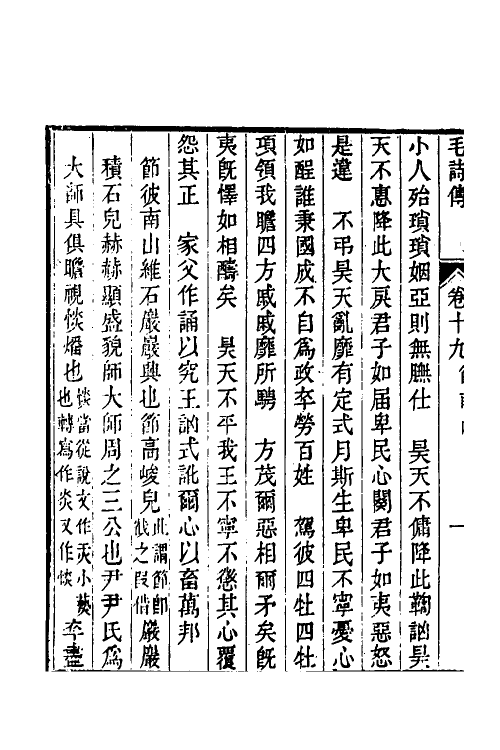 毛詩傳 卷十九 一
小人殆瑣瑣姻亞則無膴仕　昊天不傭降此鞠訩昊
天不惠降此大戾君子如屆卑民心闋君子如夷惡怒
是違　不弔昊天亂靡有定式月斯生卑民不寧憂心
如酲誰秉國成不自爲政卒勞百姓　駕彼四牡四牡
項領我瞻四方戚戚靡所騁　方茂爾惡相爾矛矣旣
夷旣懌如相醻矣　昊天不平我王不寧不懲其心覆
怨其正　家父作誦以究王訩式訛爾心以畜萬邦
節彼南山維石巖巖興也節高峻皃此謂節卽𡴎之叚借巖巖
積石皃赫赫顯盛貌師大師周之三公也尹尹氏爲
大師具俱瞻視惔燔也惔當從說文作㷋小爇也轉寫作炎又作惔卒盡